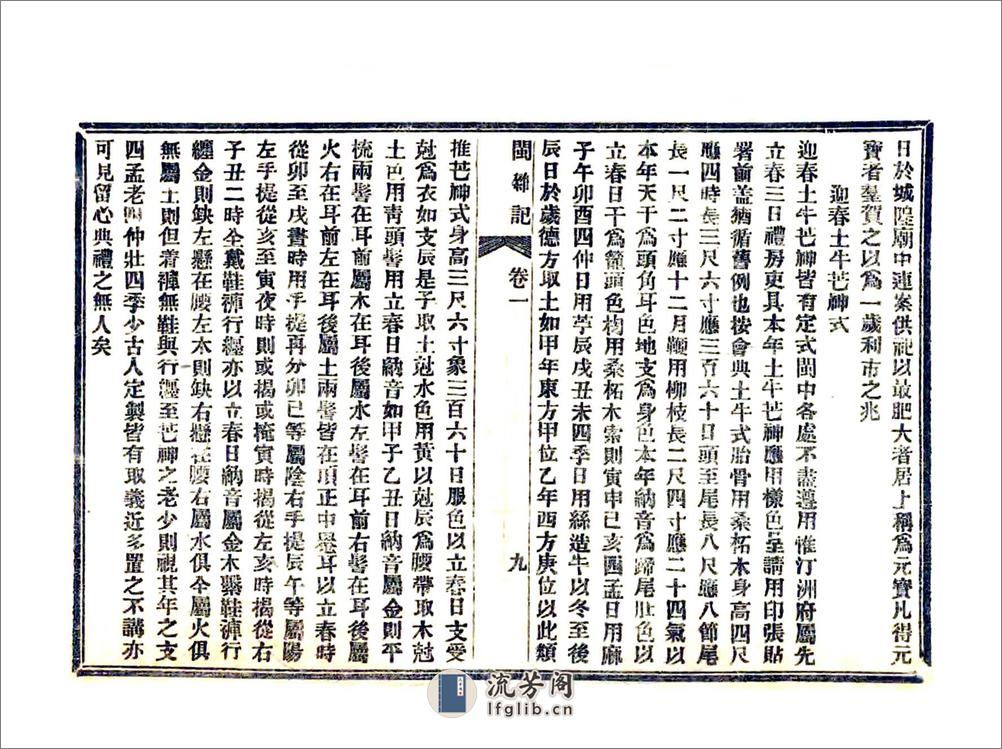 日於城隍廟中連案供祀以最肥大者居上稱爲元寶凡得元
寶者羣賀之以爲一歲利市之兆
迎春土牛芒神式
迎春土牛芒神皆有定式閩中各處不盡遵用惟汀洲府屬先
立春三日禮房吏具本年土牛芒神應用樣色呈請用印張貼
署前蓋猶循舊例也按會典土牛式胎骨用桑柘木身高四尺
應四時長三尺六寸應三百六十日頭至尾長八尺應八節尾
長一尺二寸應十二月鞭用柳枝長二尺四寸應二十四氣以
本年天干爲頭角耳色地支爲身色本年納音爲蹄尾肚色以
立春日干爲籠頭色构用桑柘木索則寅申巳亥四孟日用麻
子午卯酉四仲日用苧辰戌丑未四季日用絲造牛以冬至後
辰日於歲德方取土如甲年東方甲位乙年西方庚位以此類
閩雜記
卷一
九
推芒神式身高三尺六寸象三百六十日服色以立春日支受
尅爲衣如支辰是子取土尅水色用黃以尅辰爲腰帶取木尅
土色用靑頭髻用立春日納音如甲子乙丑日納音屬金則平
梳兩髻在耳前屬木在耳後屬水左髻在耳前右髻在耳後屬
火右在耳前左在耳後屬土兩髻皆在頂正中罨耳以立春時
從卯至戌晝時用手提再分卯巳等屬陰右手提辰午等屬陽
左手提從亥至寅夜時則或揭或掩寅時揭從左亥時揭從右
子丑二時全戴鞋褲行纏亦以立春日納音屬金木繫鞋褲行
纏金則缺左懸在腰左木則缺右懸在腰右屬水俱全屬火俱
無屬土則但着褲無鞋與行纏至芒神之老少則視其年之支
四孟老四仲壯四季少古人定製皆有取義近多置之不講亦
可見留心典禮之無人矣
流芳阁
lfglib.cn